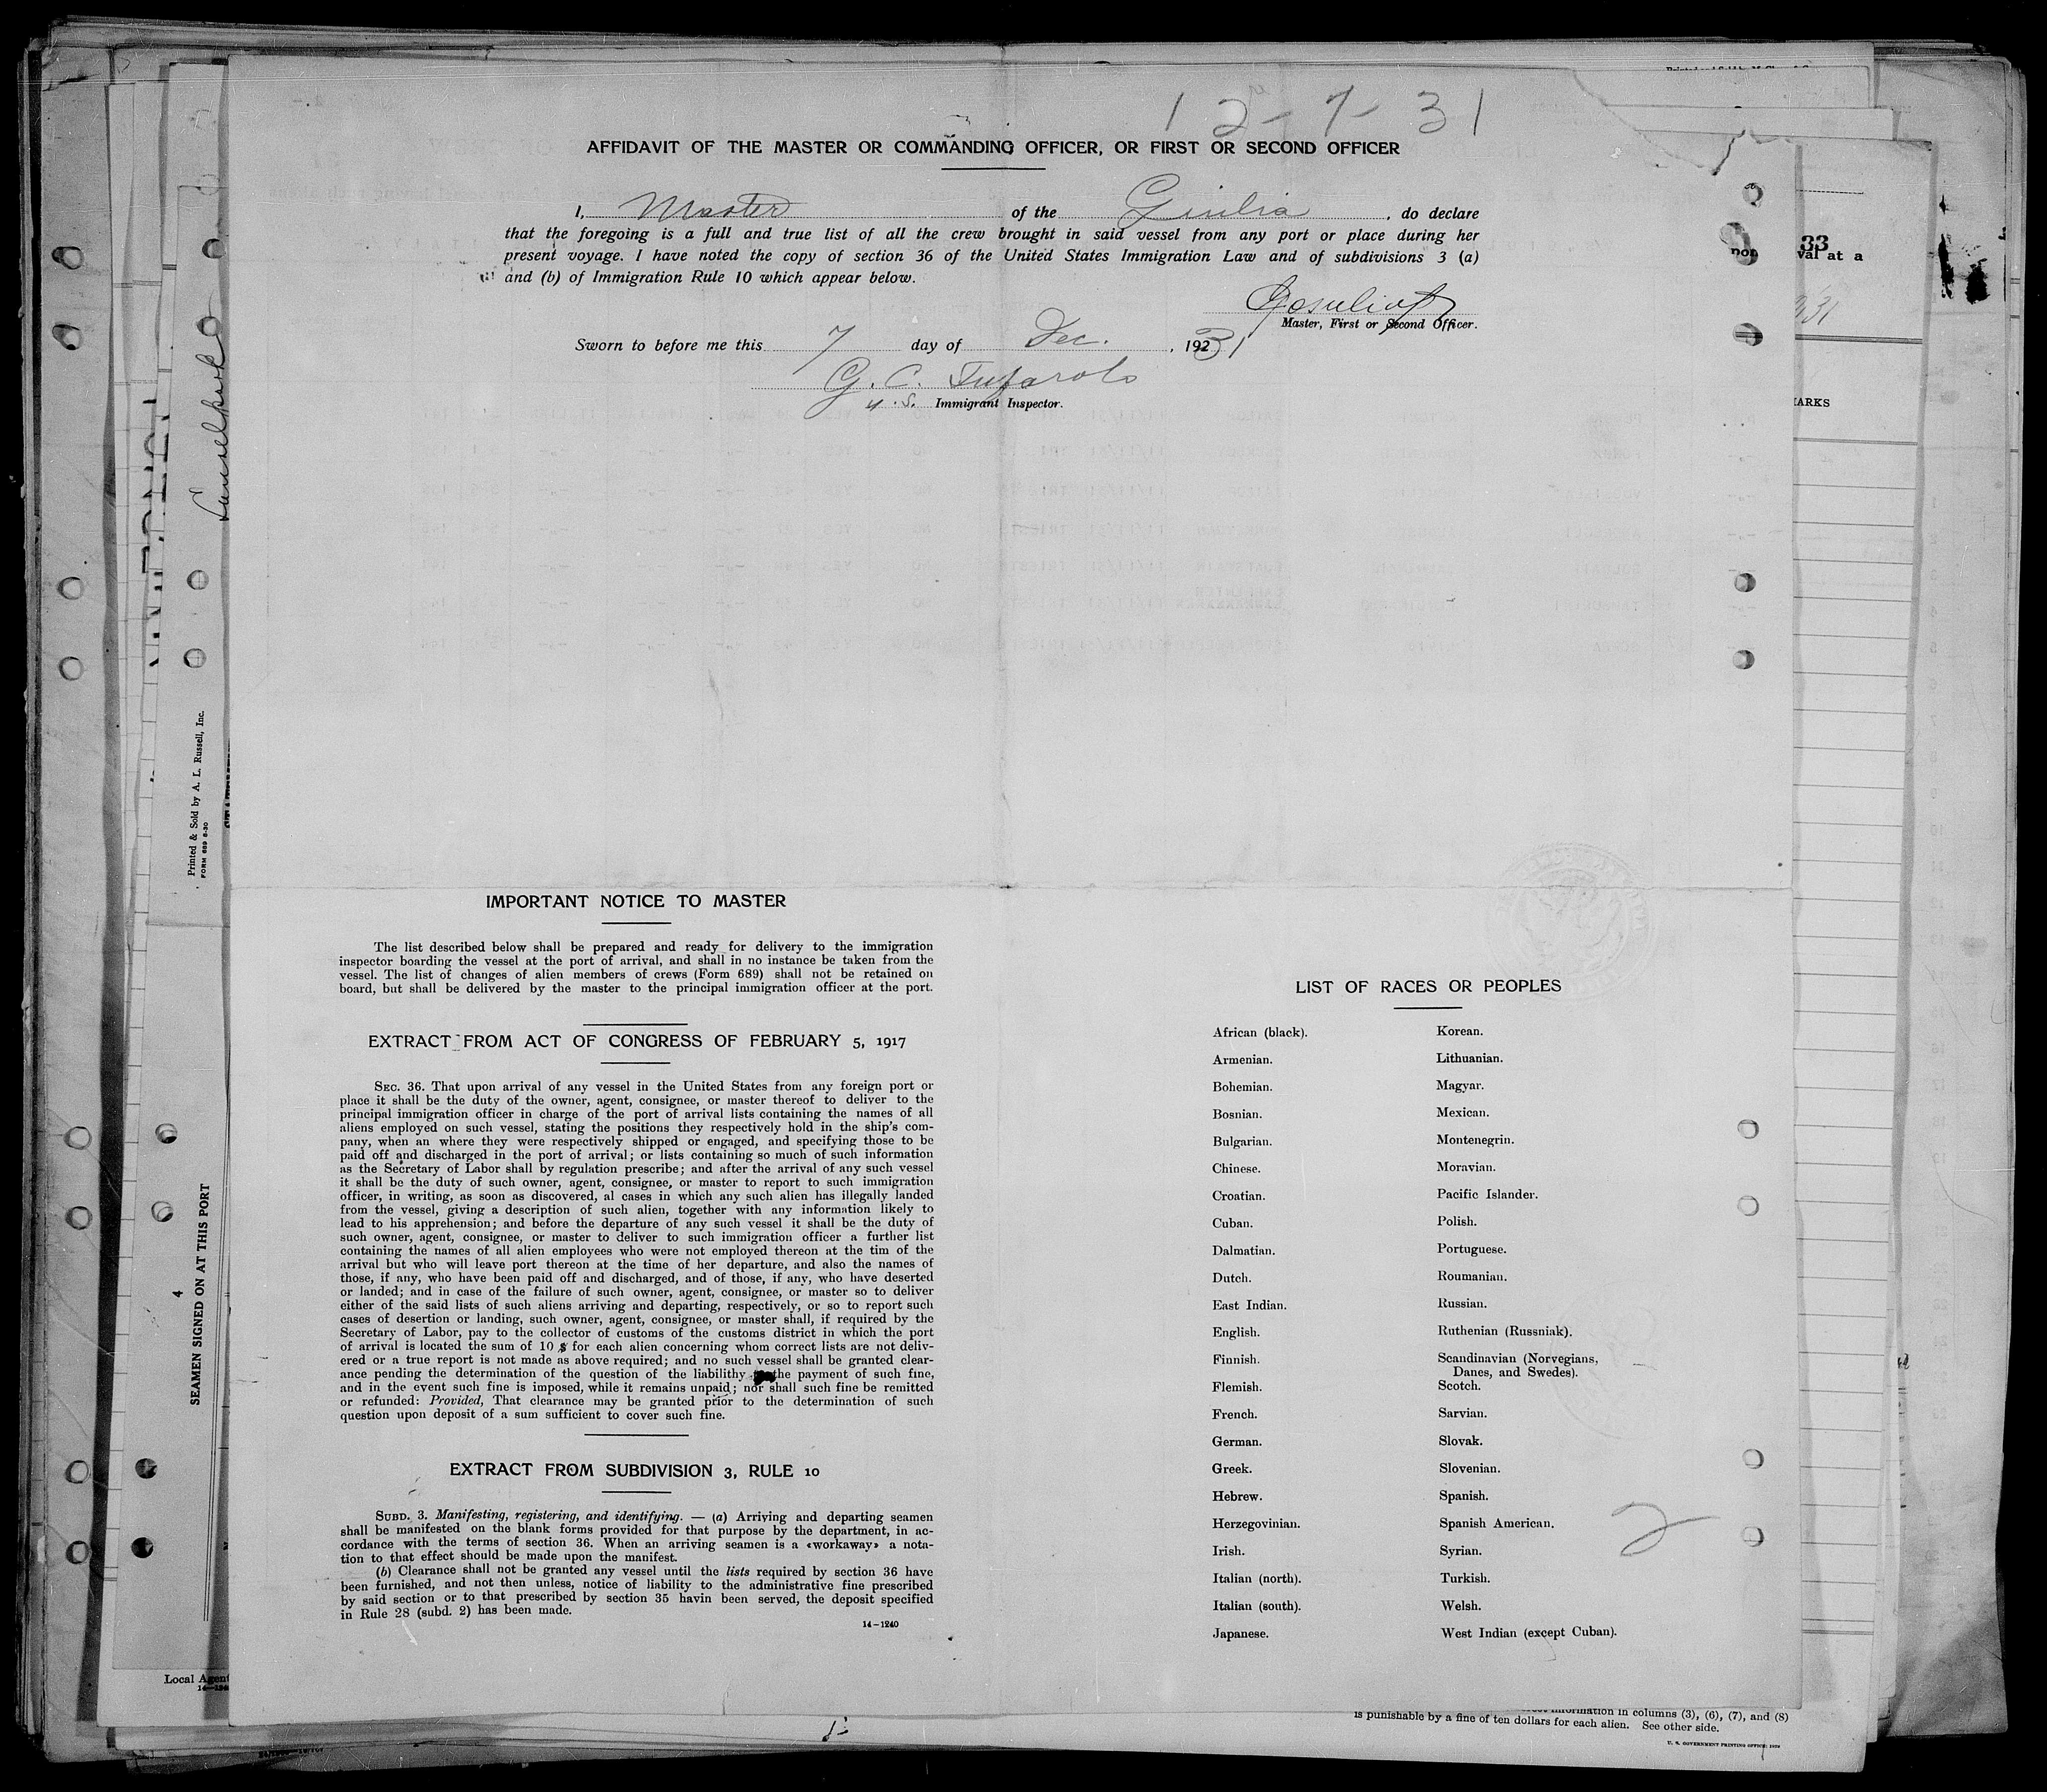 12-7-31
AFFIDAVIT OF THE MASTER OR COMMANDING OFFICER, OR FIRST OR SECOND OFFICER
I, Master of the Giulia, do declare
that the foregoing is a full and true list of all the crew brought in said vessel from any port or place during her
present voyage. I have noted the copy of section 36 of the United States Immigration Law and of subdivisions 3 (a)
and (b) of Immigration Rule 10 which appear below.
Master, First or Second Officer.
Sworn to before me this 7 day of Dec. , 1931
G. C. Tufarolo
U.S. Immigrant Inspector.
IMPORTANT NOTICE TO MASTER
The list described below shall be prepared and ready for delivery to the immigration
inspector boarding the vessel at the port of arrival, and shall in no instance be taken from the
vessel. The list of changes of alien members of crews (Form 689) shall not be retained on
board, but shall be delivered by the master to the principal immigration officer at the port.
EXTRACT FROM ACT OF CONGRESS OF FEBRUARY 5, 1917
SEC. 36. That upon arrival of any vessel in the United States from any foreign port or
place it shall be the duty of the owner, agent, consignee, or master thereof to deliver to the
principal immigration officer in charge of the port of arrival lists containing the names of all
aliens employed on such vessel, stating the positions they respectively hold in the ship's com-
pany, when an where they were respectively shipped or engaged, and specifying those to be
paid off and discharged in the port of arrival; or lists containing so much of such information
as the Secretary of Labor shall by regulation prescribe; and after the arrival of any such vessel
it shall be the duty of such owner, agent, consignee, or master to report to such immigration
officer, in writing, as soon as discovered, al cases in which any such alien has illegally landed
from the vessel, giving a description of such alien, together with any information likely to
lead to his apprehension; and before the departure of any such vessel it shall be the duty of
such owner, agent, consignee, or master to deliver to such immigration officer a further list
containing the names of all alien employees who were not employed thereon at the tim of the
arrival but who will leave port thereon at the time of her departure, and also the names of
those, if any, who have been paid off and discharged, and of those, if any, who have deserted
or landed; and in case of the failure of such owner, agent, consignee, or master so to deliver
either of the said lists of such aliens arriving and departing, respectively, or so to report such
cases of desertion or landing, such owner, agent, consignee, or master shall, if required by the
Secretary of Labor, pay to the collector of customs of the customs district in which the port
of arrival is located the sum of 10 $ for each alien concerning whom correct lists are not deliv-
ered or a true report is not made as above required; and no such vessel shall be granted clear-
ance pending the determination of the question of the liabilithy the payment of such fine,
and in the event such fine is imposed, while it remains unpaid; nor shall such fine be remitted
or refunded: Provided, That clearance may be granted prior to the determination of such
question upon deposit of a sum sufficient to cover such fine.
EXTRACT FROM SUBDIVISION 3, RULE 10
SUBD. 3. Manifesting, registering, and identifying. — (a) Arriving and departing seamen
shall be manifested on the blank forms provided for that purpose by the department, in ac-
cordance with the terms of section 36. When an arriving seamen is a «workaway» a nota-
tion to that effect should be made upon the manifest.
(b) Clearance shall not be granted any vessel until the lists required by section 36 have
been furnished, and not then unless, notice of liability to the administrative fine prescribed
by said section or to that prescribed by section 35 havin been served, the deposit specified
in Rule 28 (subd. 2) has been made.
14-1240
LIST OF RACES OR PEOPLES
African (black).
Armenian.
Bohemian.
Bosnian.
Bulgarian.
Chinese.
Croatian.
Cuban.
Dalmatian.
Dutch.
East Indian.
English.
Finnish.
Flemish.
French.
German.
Greek.
Hebrew.
Herzegovinian.
Irish.
Italian (north).
Italian (south).
Japanese.
Korean.
Lithuanian.
Magyar.
Mexican.
Montenegrin.
Moravian.
Pacific Islander.
Polish.
Portuguese.
Roumanian.
Russian.
Ruthenian (Russniak).
Scandinavian (Norvegians,
Danes, and Swedes).
Scotch.
Sarvian.
Slovak.
Slovenian.
Spanish.
Spanish American.
Syrian.
Turkish.
Welsh.
West Indian (except Cuban).
2
Printed & Sold by A. L. Russell, Inc.
FORM 689 5-30
4
SEAMEN SIGNED ON AT THIS PORT
Local Agent
33
val at a
331
ARKS
information in columns (3), (6), (7), and (8)
is punishable by a fine of ten dollars for each alien. See other side.
U. S. GOVERNMENT PRINTING OFFICE: 1929